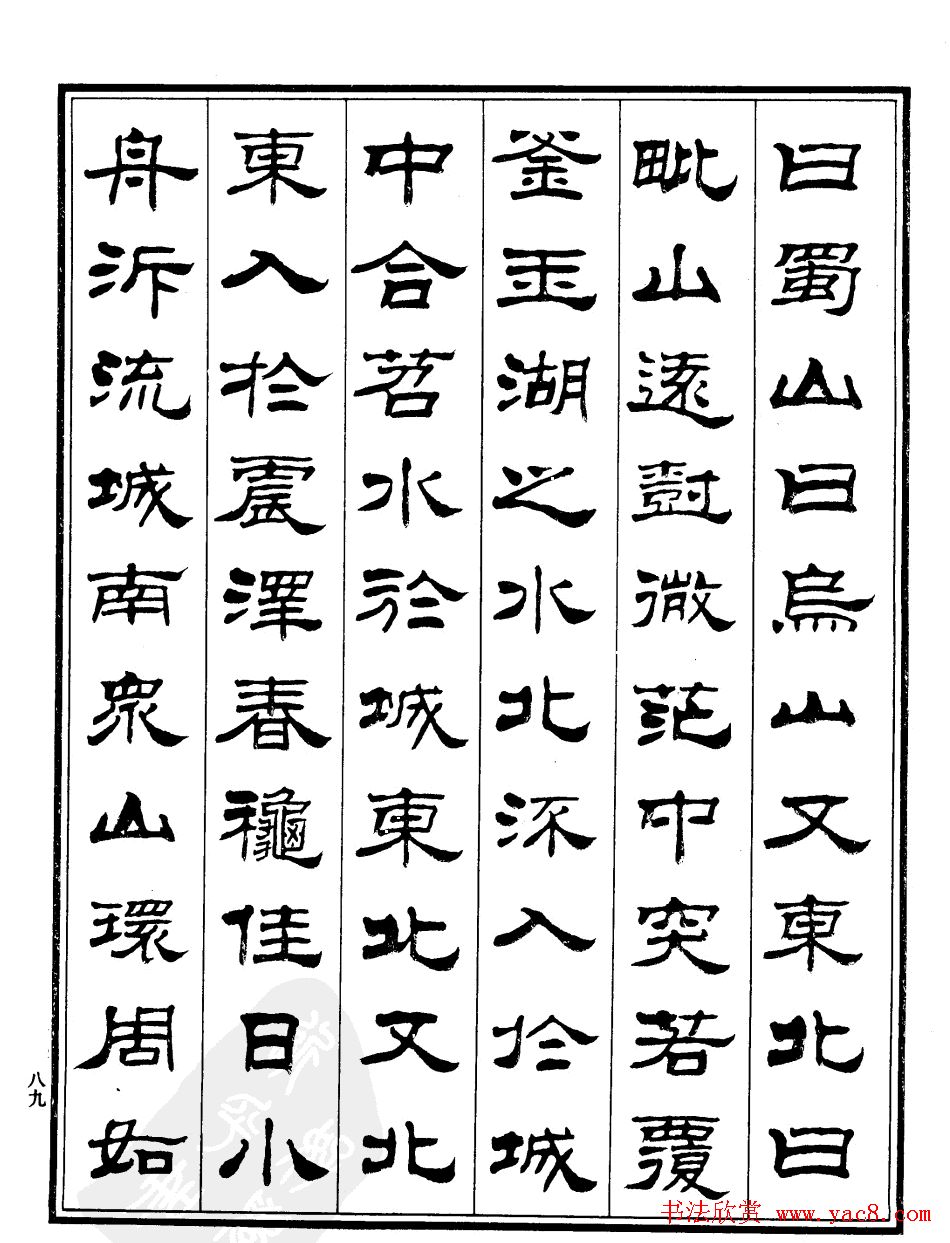 曰蜀山曰烏山又東北曰
毗山遠對微茫中突若覆
釜玉湖之水北流入於城
中合苕水於城東北又北
東入於震澤春龝佳日小
舟泝流城南衆山環周如
八九
书法欣赏 www.yac8.com